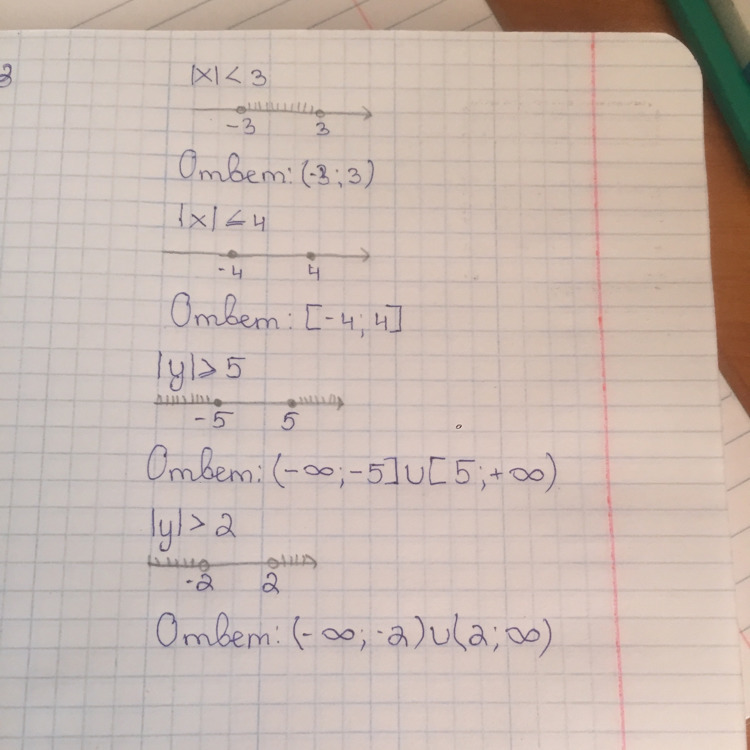 |x| < 3
-3 3
Ответ: (-3; 3)
|x| ⩽ 4
-4 4
Ответ: [-4; 4]
|y| ⩾ 5
-5 5
Ответ: (-∞; -5] ∪ [5; +∞)
|y| > 2
-2 2
Ответ: (-∞; -2) ∪ (2; ∞)